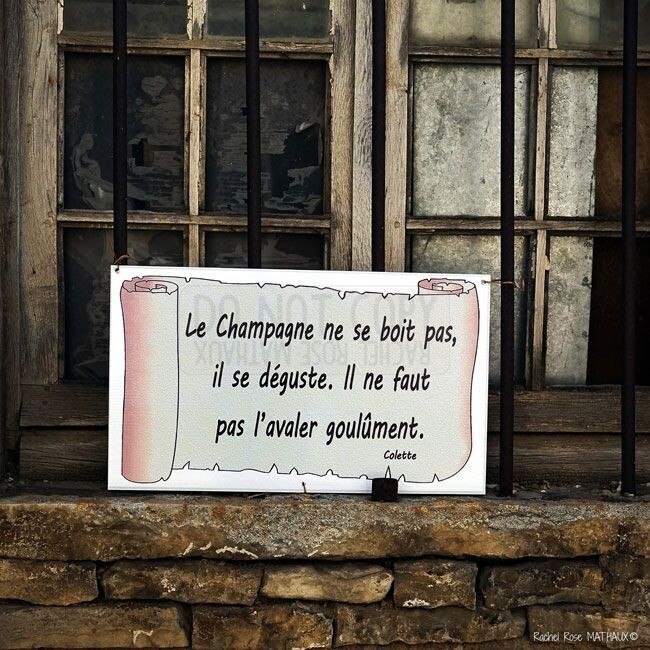 DO NOT COPY
RACHEL ROSE MATHAUX
Le Champagne ne se boit pas,
il se déguste. Il ne faut
pas l'avaler goulûment.
Colette
Rachel Rose MATHAUX©